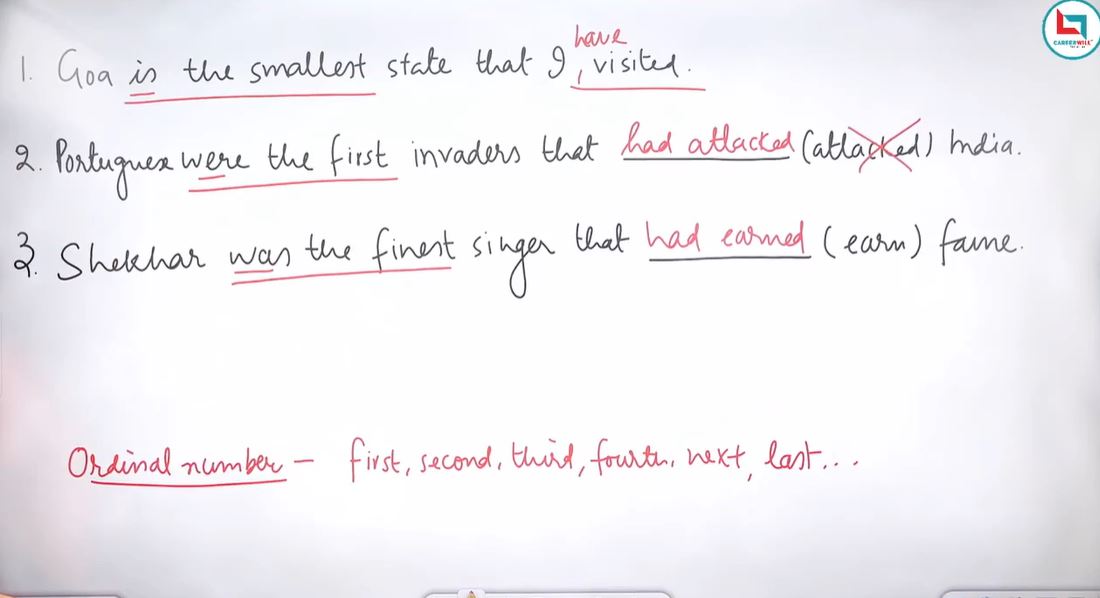 CAREERWILL
have
1. Goa is the smallest state that I , visited.
2. Portuguex were the first invaders that had attacked (attacked) India.
3. Shekhar was the finest singer that had earned (earn) fame.
Ordinal number – first, second, third, fourth, next, last...